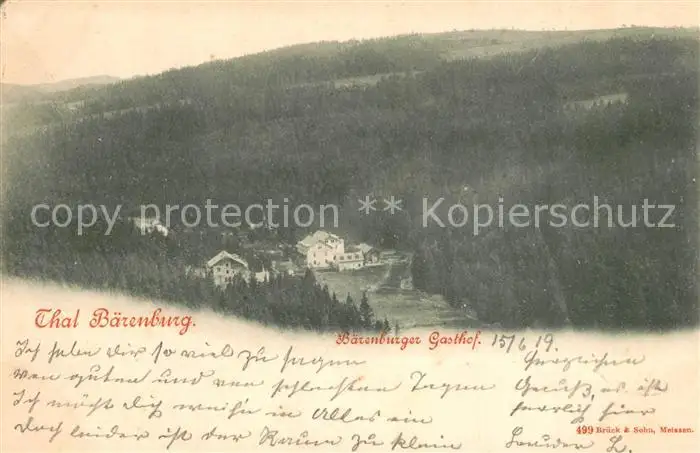 copy protection ** Kopierschutz
Thal Bärenburg.
Bärenburger Gasthof. 15/6 19.
Ich haben Dir so viel zu sagen
von guten und von schlechten Tagen
Ich möcht Dich weih'n in Alles ein
doch leider ist der Raum zu klein
Herzlichen
Gruß, es ist
herrlich hier
499 Brück & Sohn, Meissen.